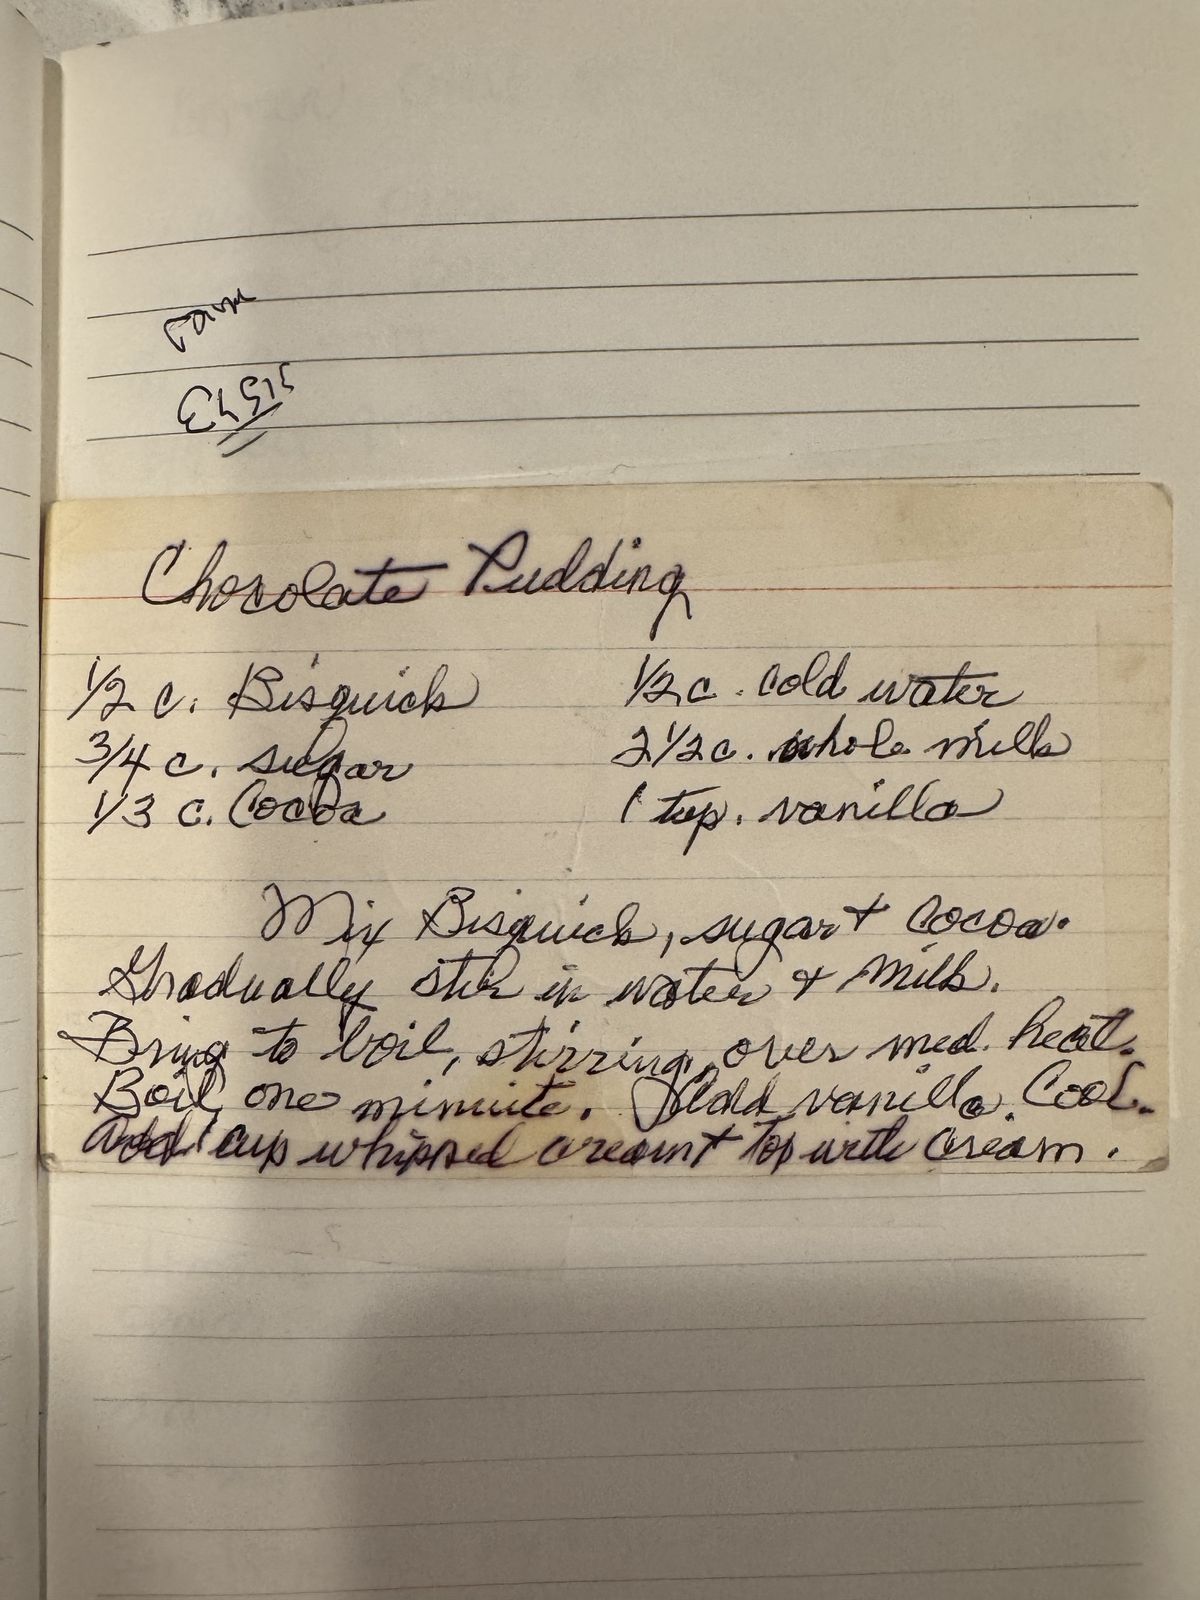 Chocolate Pudding
1/2 c. Bisquick 1/2 c. cold water
3/4 c. sugar 2 1/2 c. whole milk
1/3 c. Cocoa 1 tsp. vanilla
Mix Bisquick, sugar + Cocoa.
Gradually stir in water + milk.
Bring to boil, stirring, over med. heat.
Boil one minuite. Add vanilla. Cool.
Add 1 cup whipped cream + top with cream.